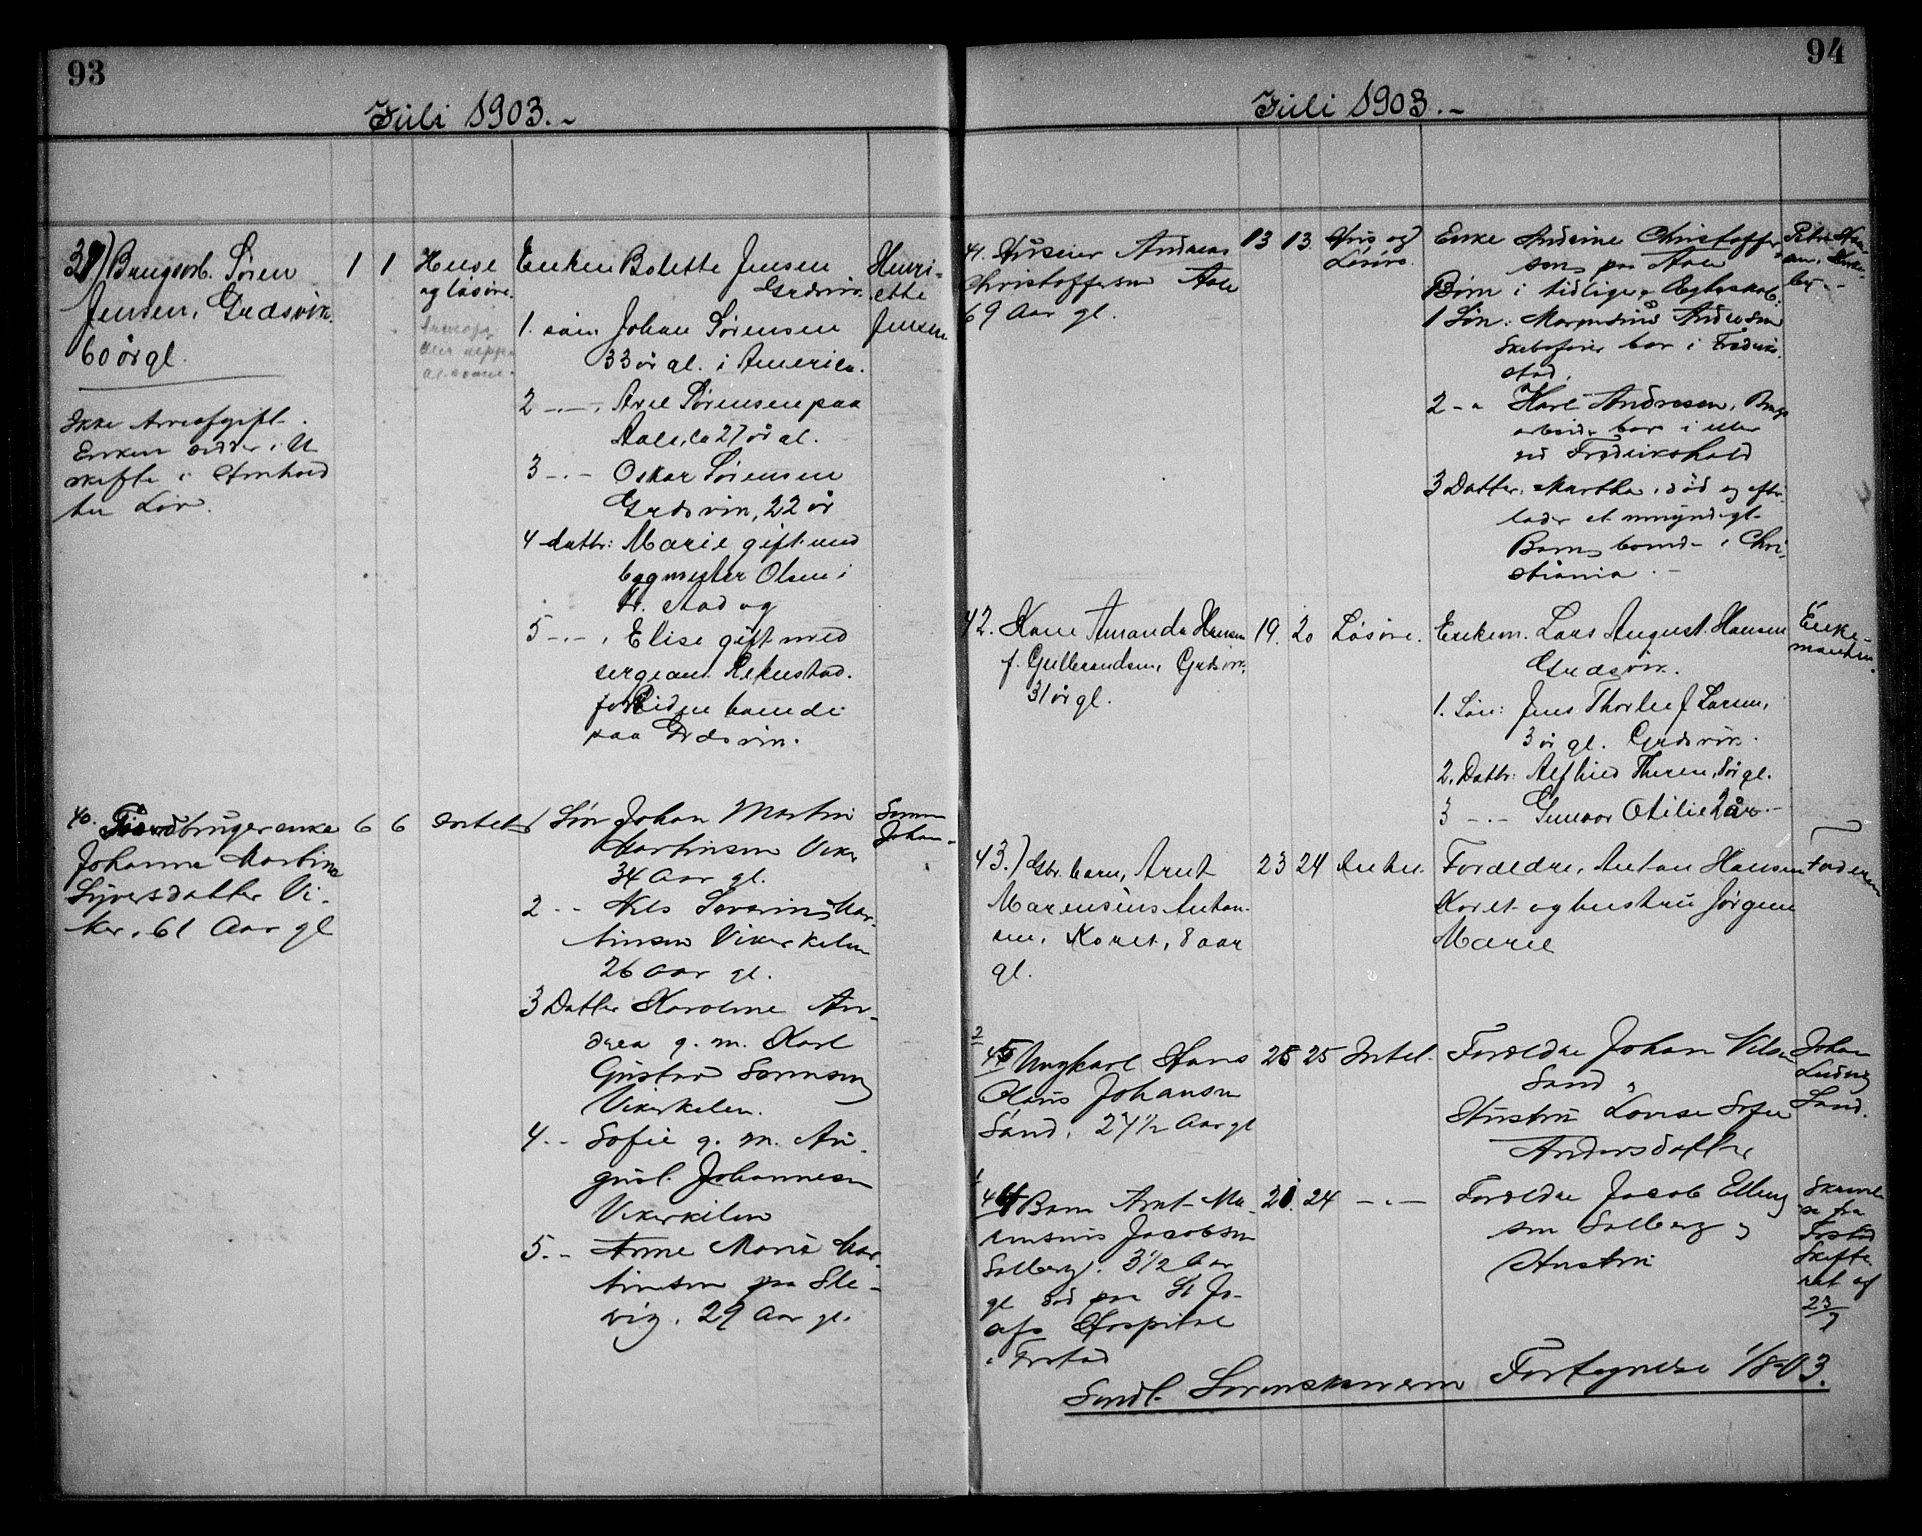 93
Juli 1903.-
39) Brugsarb. Søren
Jensen, Græsvik.
60 år gl.
Ikke Arveafgift.
Enken sidder i U
skifte i Henhold
til Lov.
1 1
Huse
og løsøre.
Enken Bolette Jensen
Græsvik.
1. søn. Johan Sørensen
33 år gl. i Amerika.
2 -.- , Arve Sørensen paa
Aale, ca 27 år gl.
3 -.- Oskar Sørensen
Græsvik, 22 år
4 datter: Marie gift med
bygmester Olsen i
Fr. stad og
5 -.- , Elise gift med
sergeant Rekustad.
for tiden boende
paa Græsvik.
Henri-
ette
Jensen
40. Gårdbrugerenke
Johanne Martine
Syversdatter Vi-
ker, 61 Aar gl
6 6
Intet
1 Søn Johan Martin
Martinsen Viker
34 Aar gl.
2 - - Nils Severin Mar-
tinsen Vikerkilen
26 Aar gl.
3 Datter Karoline An-
drea g. m. Karl
Gustav Sørensen
Vikerkilen.
4. - - Sofie g. m. Au-
gust Johannesen
Vikerkilen
5. - - Anne Marie Mar-
tinsen paa Sle-
vig. 29 Aar gl.
Sønnen
Johan -
94
Juli 1903.-
41. Huseier Andreas
Christoffersen Aale
69 Aar gl.
13 13
Hus og
Løsøre.
Enke Andrine Christoffer
sen, paa Aale
Børn i tidligere Ægteskab:
1 Søn: Marensius Andresen
Skibsfører bor i Fredrik
stad.
2 - - Karl Andresen, Brugs
arbeider bor i eller
ved Fredrikshald
3 Datter. Martha, død og efter
lader et umyndigt
Barn, boende i Chri-
stiania. -
42. Kone Amanda Hansen
f. Gulbrandsen, Græsvik.
31 år gl.
19. 20
Løsøre.
Enkem. Lars August Hansen
Græsvik.
1. Søn: Jens Thorleif Larsen,
3 år gl. Græsvik.
2. Datter: Alfhild Therese, 8 år gl.
3 -.- Gunvor Otilie 2 år. -
Enke-
manden.
43.) Gbr. barn, Arnt
Marensius Anton-
sen, Koret, 8 aar
gl.
23 24
Forældre, Anton Hansen
Koret og hustru Jørgine
Marie
Faderen
2
45 Ungkarl Hans
Olaus Johansen
Sand. 27 1/2 Aar gl
25 25 Intet.
Forældre Johan Nilsen
Sand,
Hustru Lovise Sofie
Andersdatter
Johan
Ludvig
Sand.
1
44 Barn Arnt Ma-
rensius Jacobsen
Solberg. 3 1/2 Aar
gl død paa St Jo-
sefs Hospital
i Frstad
21. 24 -.-
Forældre Jacob Elling
sen Solberg og
Hustru
Skrivel
se fra
Frstad
Skifte
ret af
23/7
Sendt Sorenskriveren Fortegnelse 1/8-03.